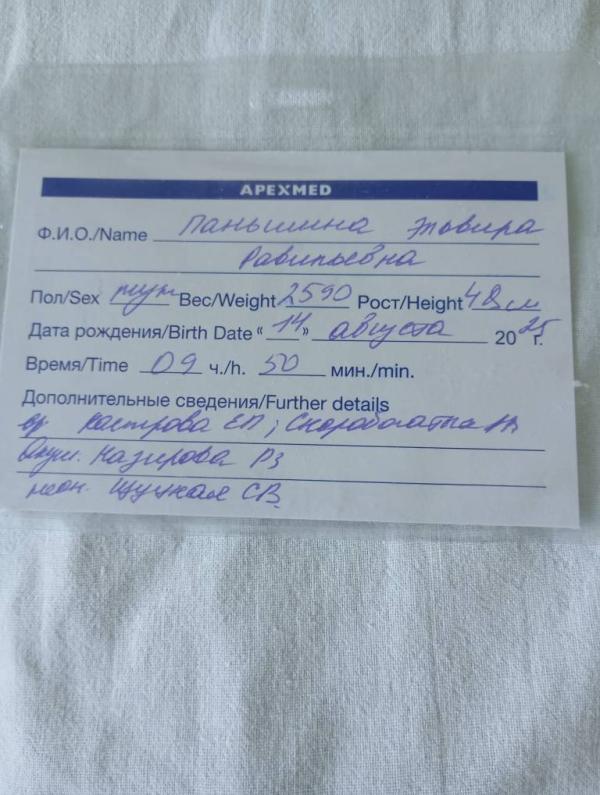 APEXMED
Ф.И.О./Name Паньшина Эльвира
Равильевна
Пол/Sex муж Вес/Weight 2590 Рост/Height 48 см
Дата рождения/Birth Date “ 14 ” августа 2025 г.
Время/Time 09 ч./h. 50 мин./min.
Дополнительные сведения/Further details
вр Кострова ЕП ;
Акуш. Назирова РЗ
неон. Щуцкая СВ.